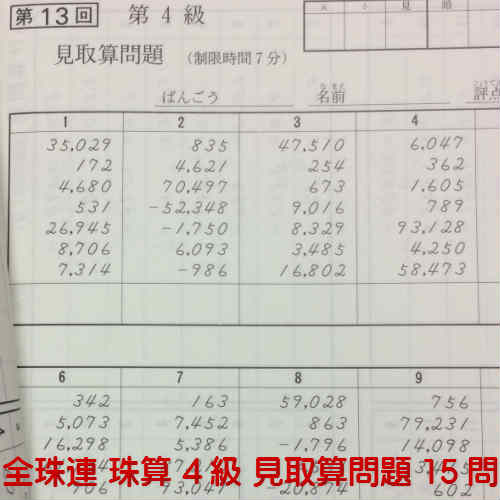 第13回 第4級
見取算問題 (制限時間7分)
ばんごう 名前 評点
1 2 3 4
35,029 835 47,510 6,047
172 4,621 254 362
4,680 70,497 673 1,605
531 -52,348 9,016 789
26,945 -1,750 8,329 93,128
8,706 6,093 3,485 4,250
7,314 -986 16,802 58,473
6 7 8 9
342 163 59,028 756
5,073 7,452 863 -79,231
16,298 5,386 -1,796 14,098
全珠連 珠算 4級 見取算問題 15問
602